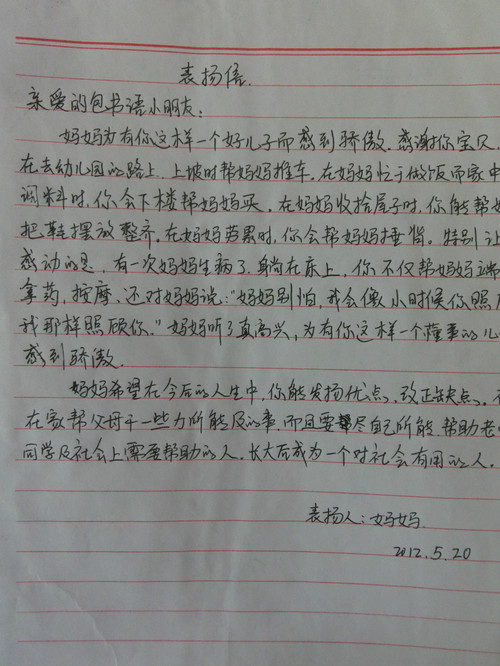 表扬信
亲爱的包书语小朋友：
妈妈为有你这样一个好儿子而感到骄傲．感谢你宝贝．
在去幼儿园的路上．上坡时帮妈妈推车．在妈妈忙于做饭而家中
调料时．你会下楼帮妈妈买．在妈妈收拾屋子时．你能帮
把鞋摆放整齐．在妈妈劳累时．你会帮妈妈捶背．特别让
感动的是．有一次妈妈生病了．躺在床上．你不仅帮妈妈端
拿药，按摩、还对妈妈说："妈妈别怕，我会像小时候你照
我那样照顾你．"妈妈听了真高兴，为有你这样一个懂事的儿
感到骄傲．
妈妈希望在今后的人生中，你能发扬优点．改正缺点．
在家帮父母干一些力所能及的事．而且要尽自己所能．帮助老
同学及社会上需要帮助的人．长大后成为一个对社会有用的人．
表扬人：妈妈．
2012.5.20